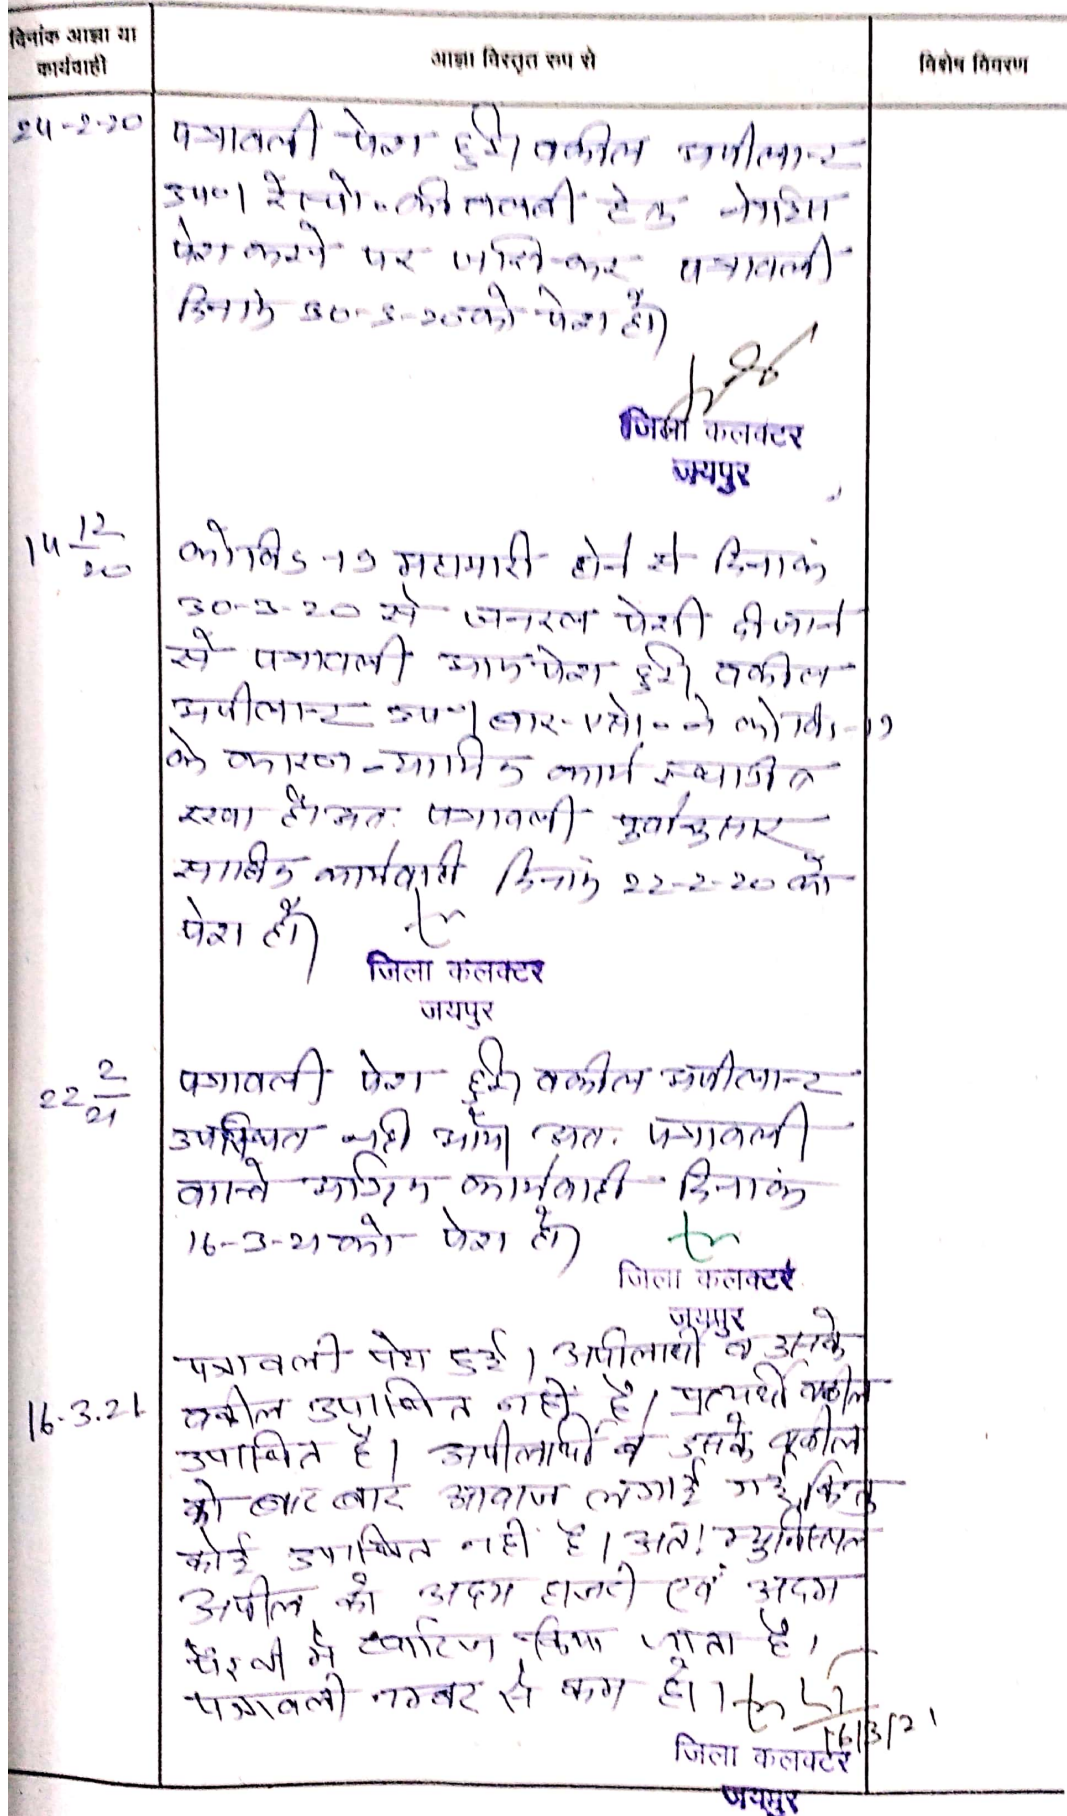 दिनांक आज्ञा या
कार्यवाही
आज्ञा विस्तृत रूप से
विशेष विवरण
24-2-20
पत्रावली पेश हुई। वकील अपीलान्ट
उप0। रेस्पो0 की तलबी हेतु नोटिस
पेश करने पर जारी कर पत्रावली
दिनांक 30-3-20 को पेश हो।
जिला कलक्टर
जयपुर
14 12/20
कोविड-19 महामारी होने से दिनांक
30-3-20 से जनरल पेशी दी जाने
से पत्रावली आज पेश हुई। वकील
अपीलान्ट उप0। बार एसो0 ने कोविड-19
के कारण न्यायिक कार्य स्थगित
रखा है। अतः पत्रावली पूर्वानुसार
कार्यवाही दिनांक 22-2-20 को
पेश हो।
जिला कलक्टर
जयपुर
22 2/21
पत्रावली पेश हुई। वकील अपीलान्ट
उपस्थित नहीं आये। अतः पत्रावली
वास्ते अग्रिम कार्यवाही दिनांक
16-3-21 को पेश हो।
जिला कलक्टर
जयपुर
16.3.21
पत्रावली पेश हुई। अपीलार्थी व उसके
वकील उपस्थित नहीं है। प्रत्यर्थी वकील
उपस्थित है। अपीलार्थी व उसके वकील
को बार बार आवाज लगाई गई, किन्तु
कोई उपस्थित नहीं है। अतः म्युनिसिपल
अपील को अदम हाजरी एवं अदम
पैरवी में खारिज किया जाता है।
पत्रावली नम्बर से कम हो।
16/3/21
जिला कलक्टर
जयपुर